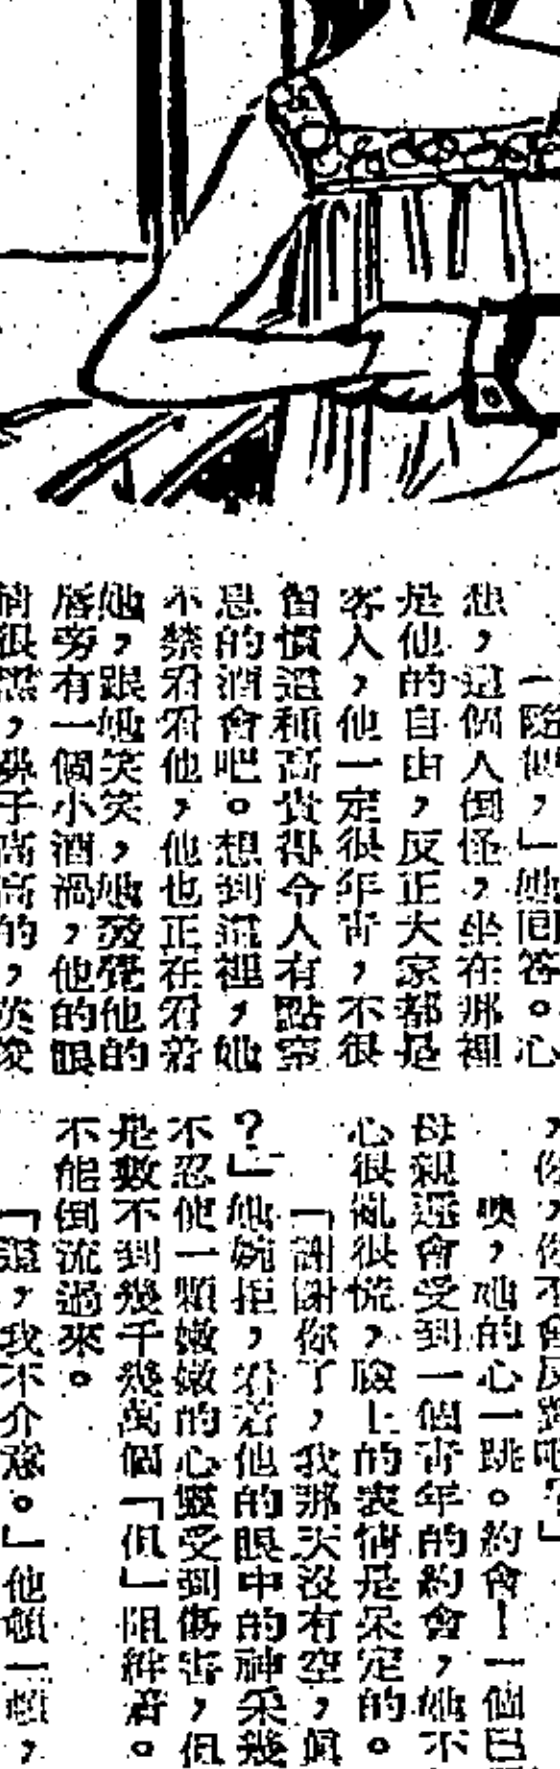 「隨便，」她回答。心
想，這個人倒怪，坐在那裡
是他的自由，反正大家都是
客人，他一定很年青，不很
習慣這種高貴得令人有點窒
息的酒會吧。想到這裡，她
不禁看看他，他也正在看着
她，跟她笑笑，她發覺他的
唇旁有一個小酒渦，他的眼
睛很黑，鼻子高高的，英俊
，你，你不會反對吧？」
噢，她的心一跳。約會！一個已
母親還會受到一個青年的約會，她不
心很亂很慌，臉上的表情是呆定的。
「謝謝你了，我那天沒有空，眞
？」她婉拒，看着他的眼中的神采幾
不忍使一顆嫩嫩的心靈受到傷害，但
是數不到幾千幾萬個「但」阻絆着。
不能倒流過來。
「這，我不介意。」他頓一頓，